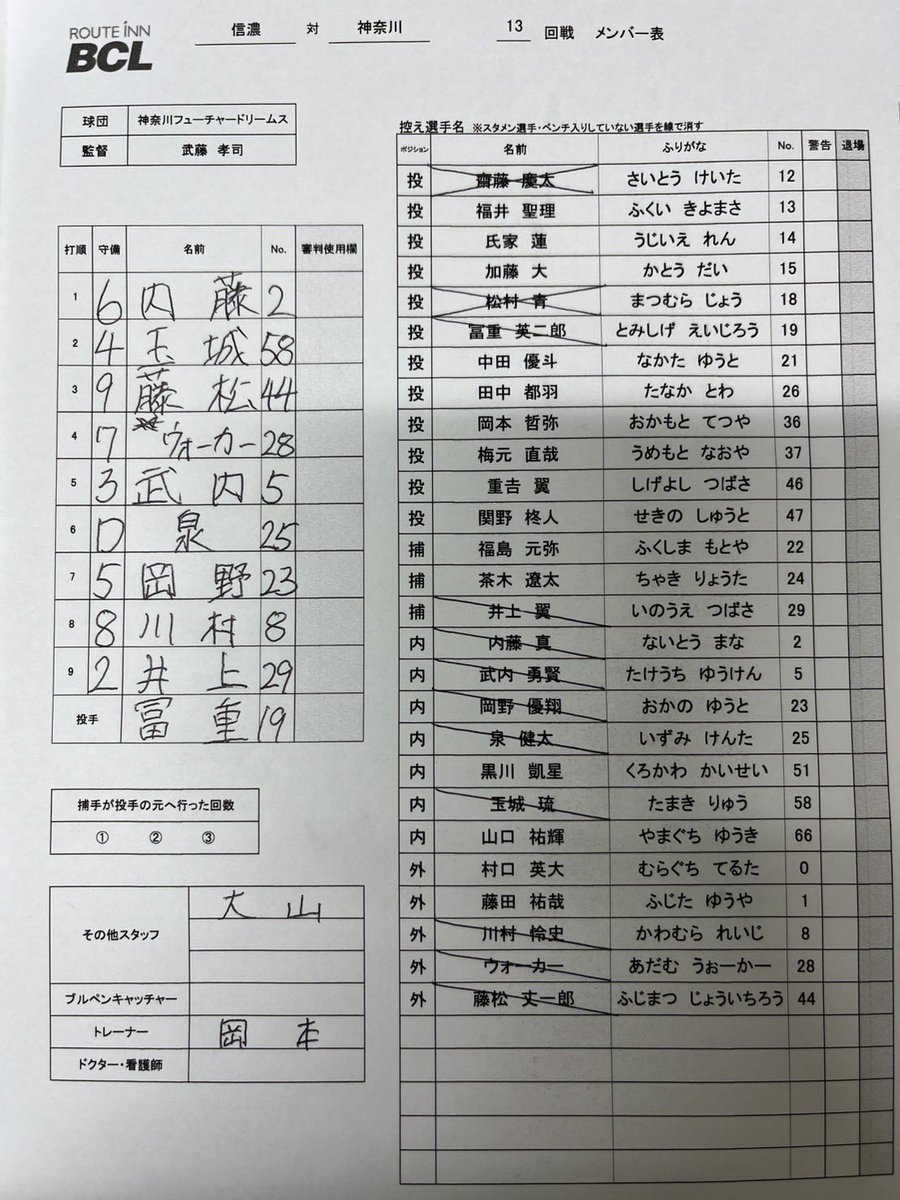 ROUTE INN
BCL
信濃 対 神奈川 13 回戦 メンバー表
球団 神奈川フューチャードリームス
監督 武藤 孝司
打順 守備 名前 No. 審判使用欄
1 6 内藤 2
2 4 玉城 58
3 9 藤松 44
4 7 ウォーカー 28
5 3 武内 5
6 D 泉 25
7 5 岡野 23
8 8 川村 8
9 2 井上 29
投手 冨重 19
捕手が投手の元へ行った回数
① ② ③
その他スタッフ 大山
ブルペンキャッチャー
トレーナー 岡本
ドクター・看護師
控え選手名 ※スタメン選手・ベンチ入りしていない選手を線で消す
ポジション 名前 ふりがな No. 警告 退場
投 齋藤 慶太 さいとう けいた 12
投 福井 聖理 ふくい きよまさ 13
投 氏家 蓮 うじいえ れん 14
投 加藤 大 かとう だい 15
投 松村 青 まつむら じょう 18
投 冨重 英二郎 とみしげ えいじろう 19
投 中田 優斗 なかた ゆうと 21
投 田中 都羽 たなか とわ 26
投 岡本 哲弥 おかもと てつや 36
投 梅元 直哉 うめもと なおや 37
投 重吉 翼 しげよし つばさ 46
投 関野 柊人 せきの しゅうと 47
捕 福島 元弥 ふくしま もとや 22
捕 茶木 遼太 ちゃき りょうた 24
捕 井上 翼 いのうえ つばさ 29
内 内藤 真 ないとう まな 2
内 武内 勇賢 たけうち ゆうけん 5
内 岡野 優翔 おかの ゆうと 23
内 泉 健太 いずみ けんた 25
内 黒川 凱星 くろかわ かいせい 51
内 玉城 琉 たまき りゅう 58
内 山口 祐輝 やまぐち ゆうき 66
外 村口 英大 むらぐち てるた 0
外 藤田 祐哉 ふじた ゆうや 1
外 川村 怜史 かわむら れいじ 8
外 ウォーカー あだむ うぉーかー 28
外 藤松 丈一郎 ふじまつ じょういちろう 44